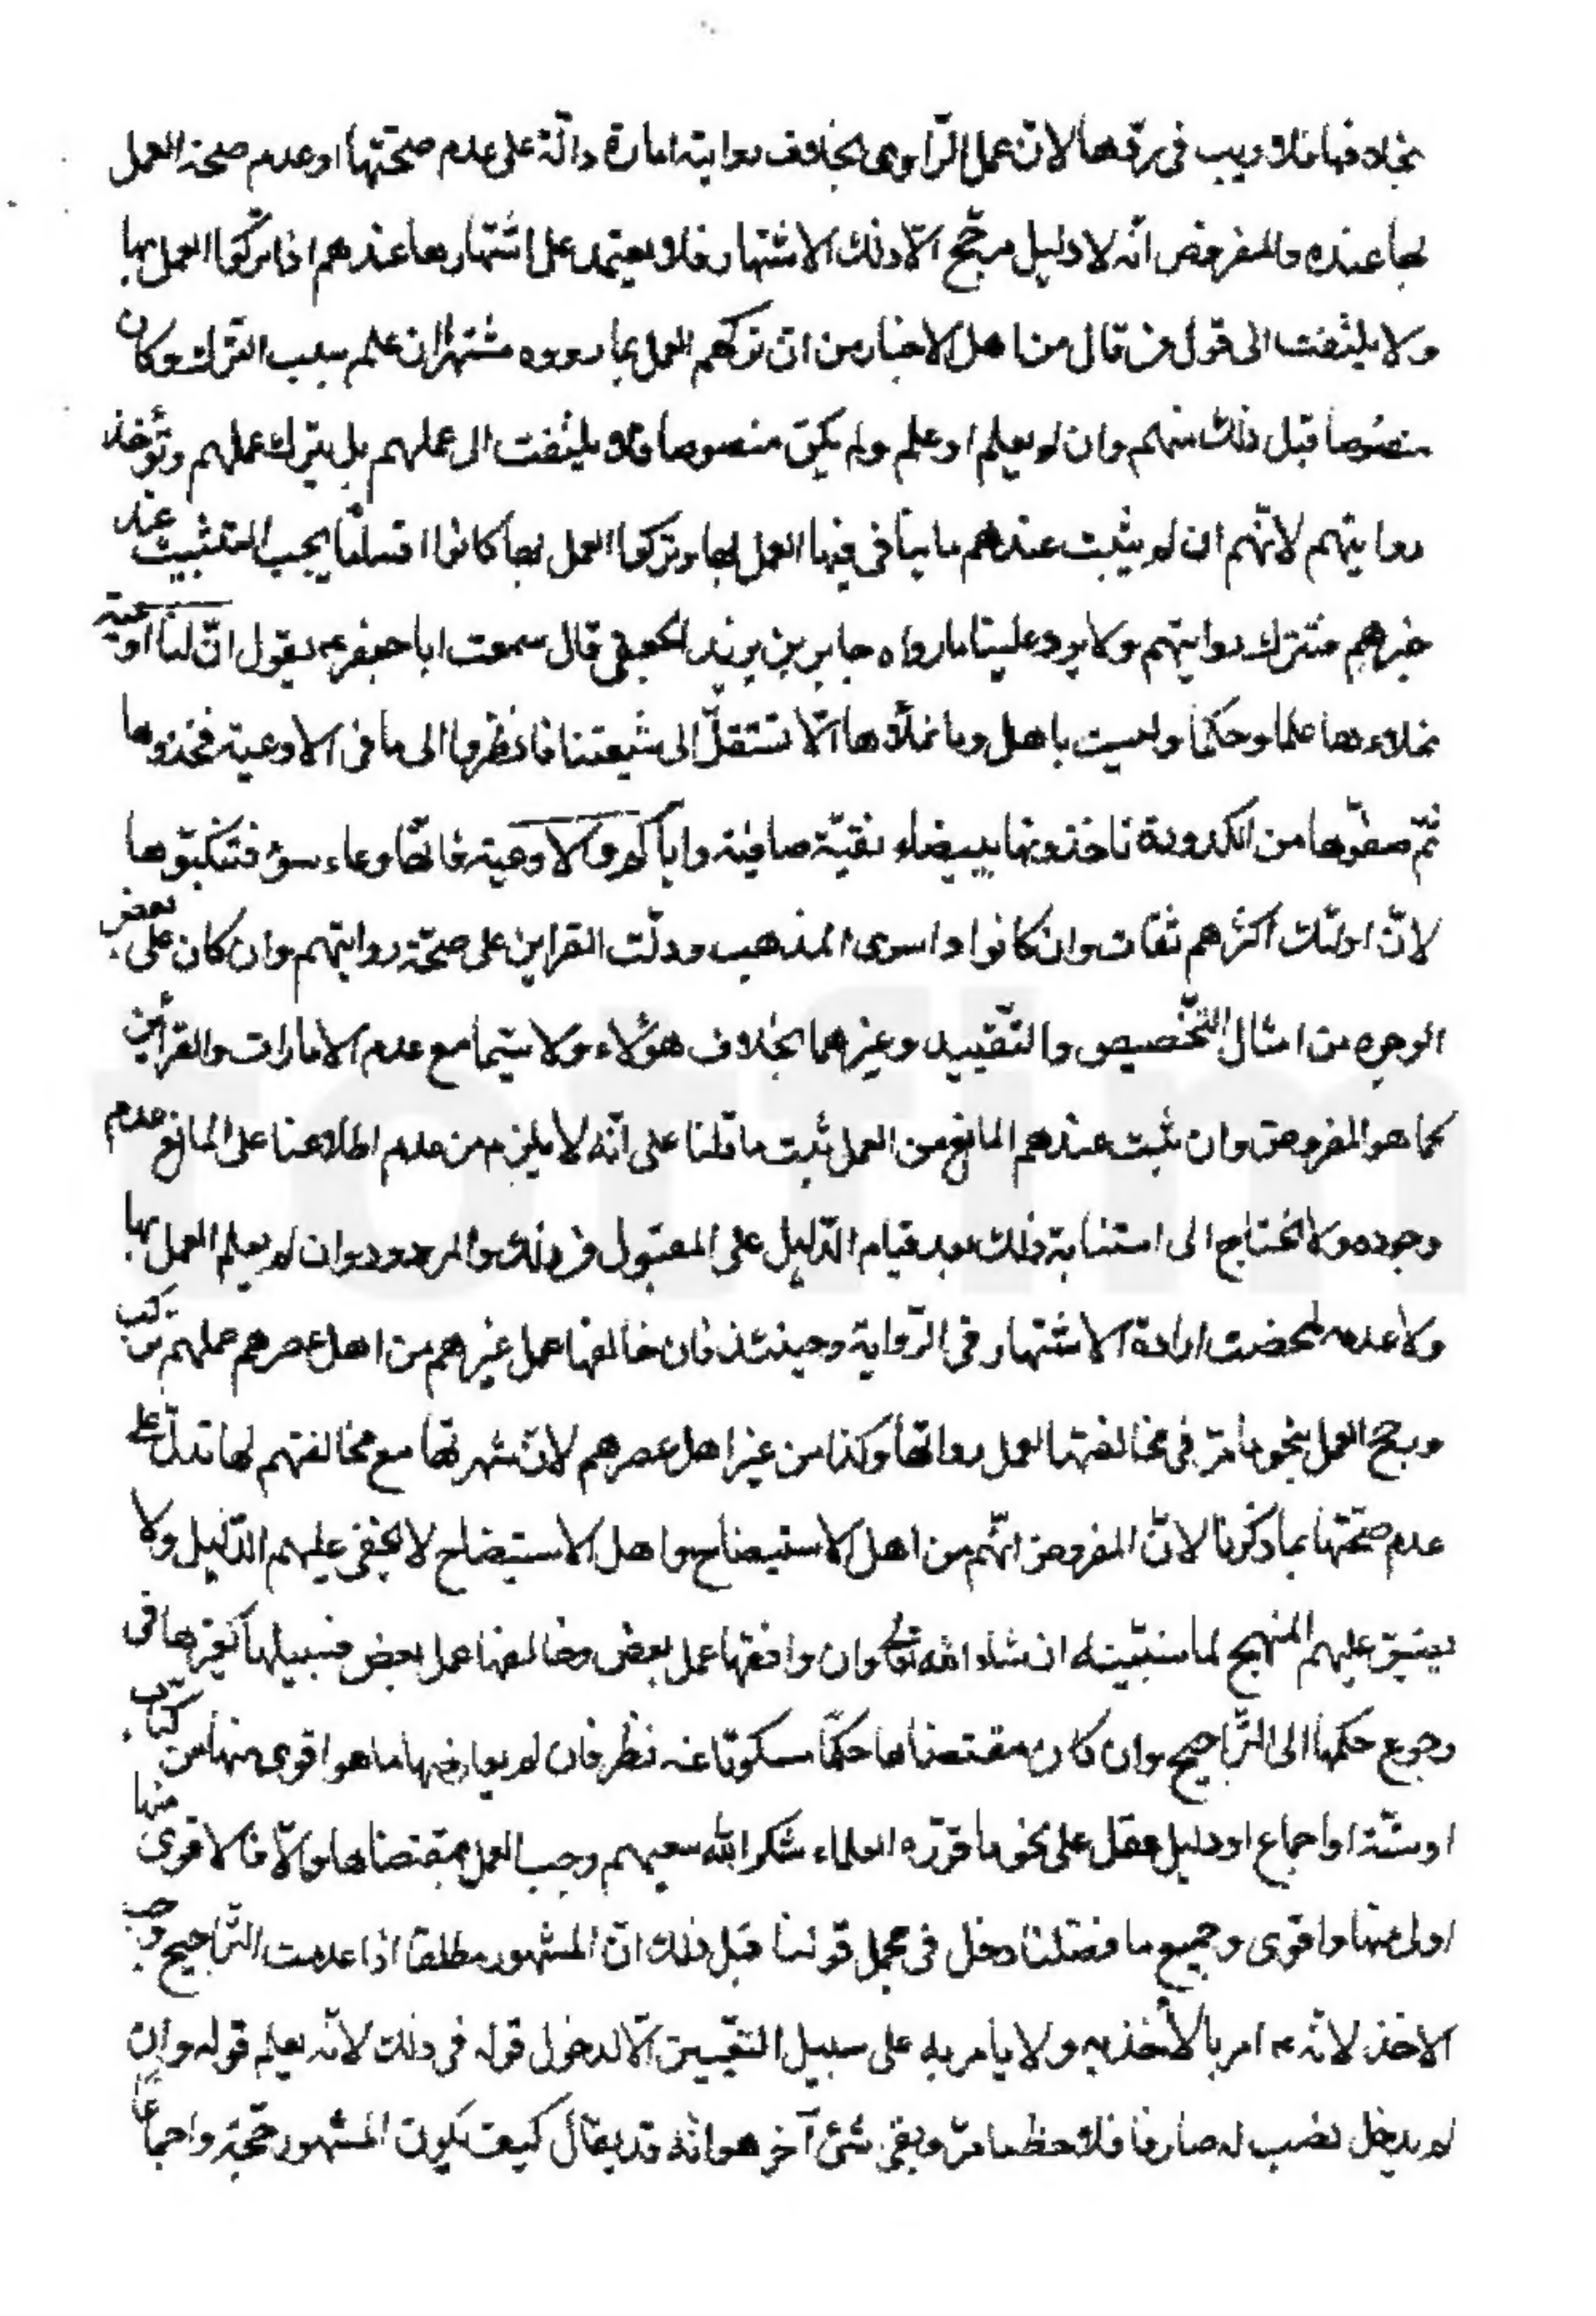 بخلافها فلا ريب في ردّها لانّ عمل الرّاوى بخلاف روايته امارة دالّة على عدم صحّتها او عدم صحة العمل
بها عنده والمفروض انّه لا دليل مرجّح الّا ذلك الاشتهار فلا يعتمد على اشتهارها عندهم اذا تركوا العمل بها
ولا يلتفت الى قول من قال من اهل الاخبار من انّ تركهم العمل بما رووه مشتهرا ان علم سبب الترك وكان
منصوصا قبل ذلك منهم وان لم يعلم او علم ولم يكن منصوصا فلا يلتفت الى عملهم بل يترك عملهم وتؤخذ
روايتهم لانّهم ان لم يثبت عندهم ما ينافى فيها العمل بها وتركوا العمل بها كانوا فسّاقا يجب التثبيت عند
خبرهم فتترك روايتهم ولا يرد علينا ما رواه جابر بن يزيد الجعفى قال سمعت ابا جعفر ع يقول انّ لنا اوعية
نملاءها علما وحكما وليست باهل وما نملأها الّا لتنتقل الى شيعتنا فانظروا الى ما فى الاوعية فخذوها
ثمّ صفّوها من الكدورة تاخذونها بيضاء نقيّة صافية واياكم والاوعية فانّها وعاء سوء فتنكبّوها
لانّ اولئك اكثرهم ثقات وان كانوا سوى المذهب ودلّت القراين على صحّة روايتهم وان كان على بعض
الوجوه من امثال التخصيص والتّقييد وغيرهما بخلاف هؤلاء ولا سيّما مع عدم الامارات والقرأين
كما هو المفروض وان ثبت عندهم المانع من العمل ثبت ما قلنا على انّه لا يلزم من عدم اطلاعنا على المانع عدم
وجوده ولا نحتاج الى ذلك بعد قيام الدّليل على المقبول من ذلك والمردود وان لم يعلم العمل بها
ولا عدمه تمحضت ارادة الاشتهار فى الرّواية وحينئذ فان خالفها عمل غيرهم من اهل عصرهم عملهم تركت
ورجح العمل بنحو ما مرّ فى مخالفتها لعمل رواتها وكذا من غير اهل عصرهم لانّ شهرتها مع مخالفتهم لها تدلّ على
عدم صحّتها بما ذكرنا لانّ المفروض انّهم من اهل الاستيضاح واهل الاستيضاح لا يخفى عليهم الدّليل ولا
يضيق عليهم المنهج لما سنبيّنه ان شاء الله تعالى وان وافقها عمل بعض وخالفها عمل بعض فسبيلها كغيرها فى
رجوع حكمها الى التّراجيح وان كان مقتضاها حكمًا مسكوتا عنه نظر فان لم يعارضها ما هو اقوى منها من كتاب
او سنّة او اجماع او دليل عقل على نحو ما قرّره العلماء شكر الله سعيهم وجب العمل بمقتضاها والّا فالاقوى منها
اولى منها واقوى وجميع ما فصّلنا دخل فى مجمل قولنا قبل ذلك انّ المشهور مطلقا اذا عدمت التّراجيح وجب
الاخذ لانّه ع امر بالأخذ به ولا يأمر به على سبيل التّعيين الّا لدخول قوله فى ذلك لانّه يعلم قوله وان
لم يدخل نصب له صارفا فلاحظ ما مرّ وبقى شىء آخر هو انّه قد يقال كيف يكون المشهور حجّة واجماعا